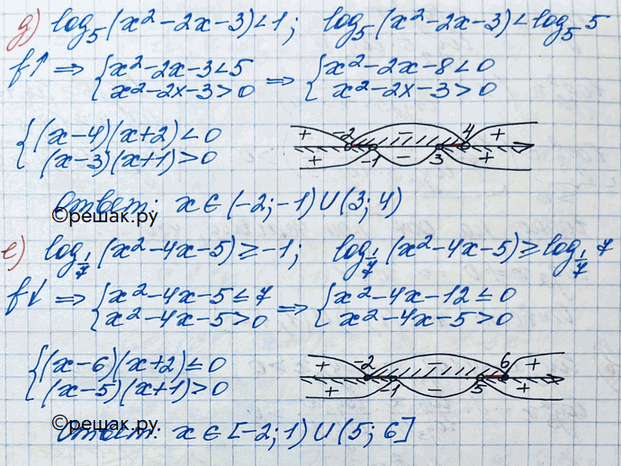 д) log₅(x²-2x-3)<1; log₅(x²-2x-3)<log₅5
f↑ ⇒ {x²-2x-3<5 ⇒ {x²-2x-8<0
x²-2x-3>0 x²-2x-3>0
{(x-4)(x+2)<0 + -2 - 4 +
(x-3)(x+1)>0 + -1 - 3 +
Ответ: x∈(-2;-1)∪(3;4)
©решак.ру
е) log_{1/7}(x²-4x-5)≥-1; log_{1/7}(x²-4x-5)≥log_{1/7}7
f↓ ⇒ {x²-4x-5≤7 ⇒ {x²-4x-12≤0
x²-4x-5>0 x²-4x-5>0
{(x-6)(x+2)≤0 + -2 - 6 +
(x-5)(x+1)>0 + -1 - 5 +
©решак.ру
Ответ: x∈[-2;1)∪(5;6]